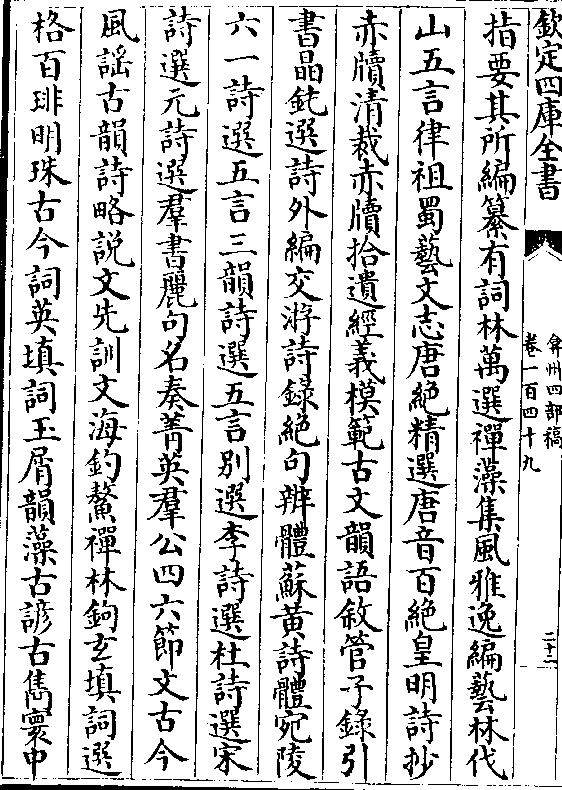 欽定四庫全書
弇州四部稿
卷一百四十九
二十二
指要其所編纂有詞林萬選禪藻集風雅逸編藝林伐
山五言律祖蜀藝文志唐絶精選唐音百絶皇明詩抄
赤牘清裁赤牘拾遺經義模範古文韻語敘管子錄引
書晶鈍選詩外編交游詩錄絶句辨體蘇黃詩體宛陵
六一詩選五言三韻詩選五言別選李詩選杜詩選宋
詩選元詩選羣書麗句名奏菁英羣公四六節文古今
風謡古韻詩略説文先訓文海釣鰲禪林鉤玄填詞選
格百琲明珠古今詞英填詞玉屑韻藻古諺古雋寰中